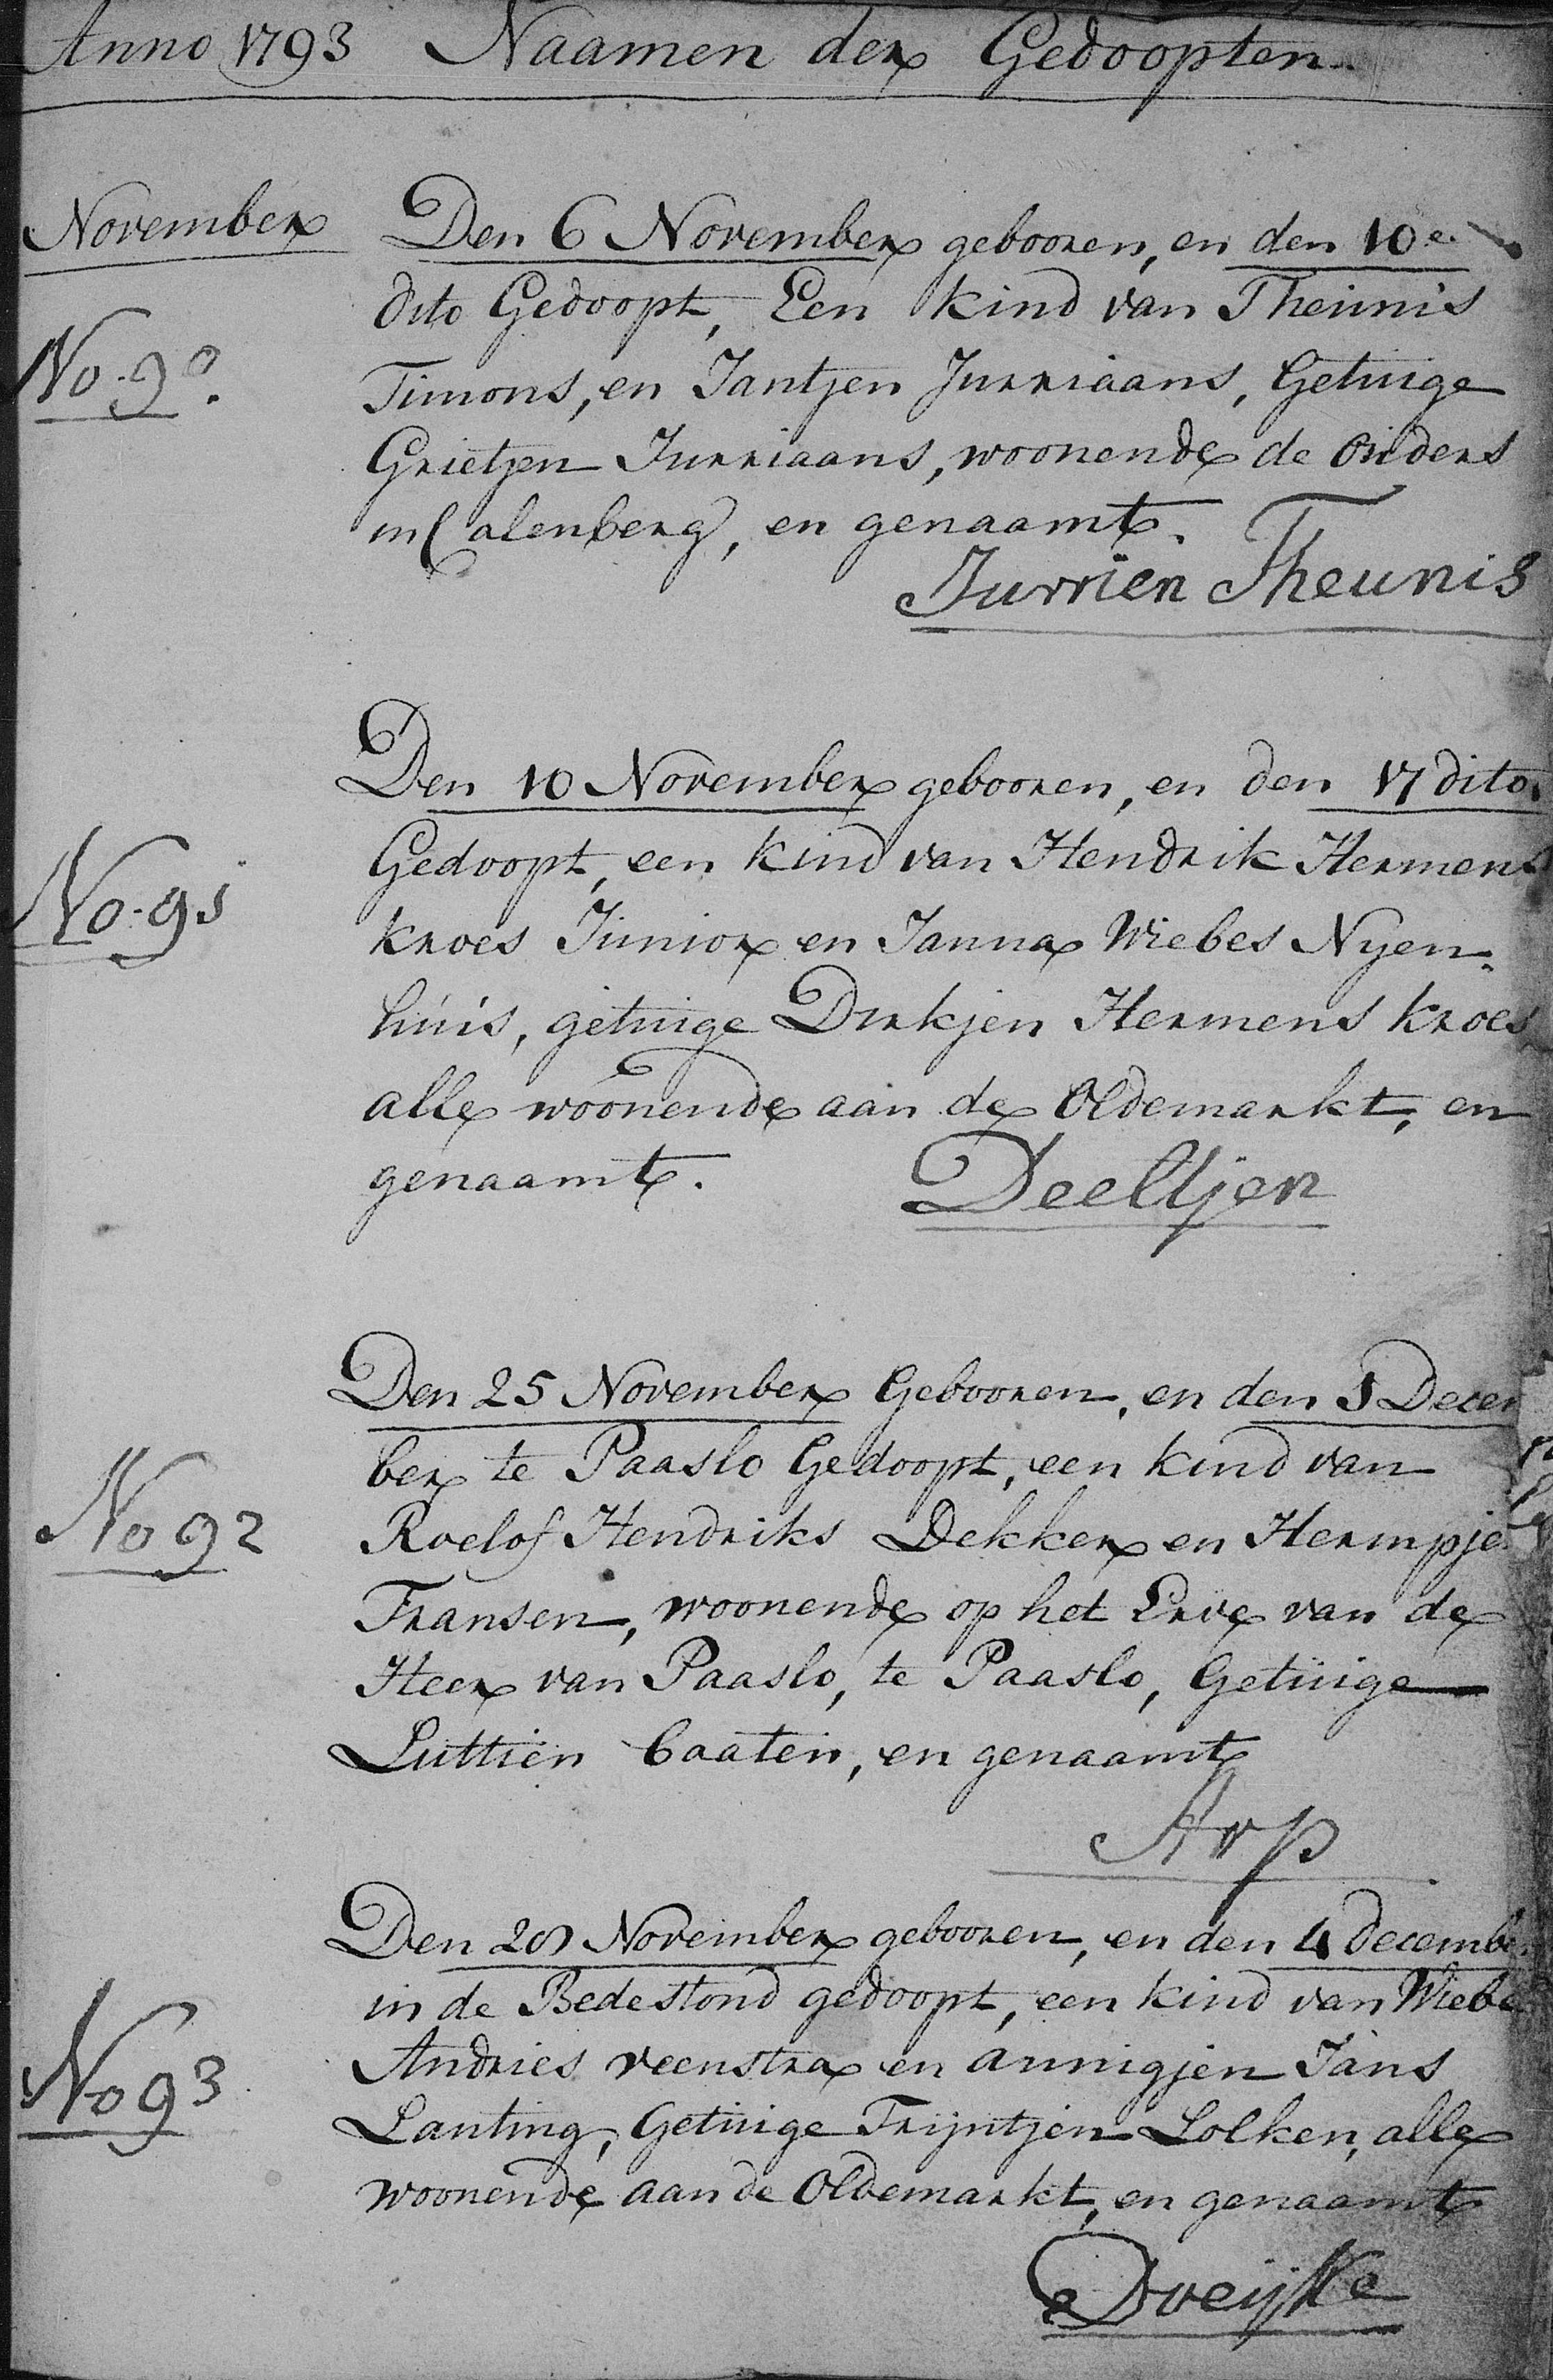 Anno 1793 Naamen der Gedoopten
November
Den 6 November gebooren, en den 10e
dito Gedoopt, Een kind van Theunis
No. 90.
Timons, en Jantjen Jurriaans, Getuige
Grietjen Jurriaans, woonende de ouders
in Calenberg, en genaamt.
Jurrien Theunis
Den 10 November gebooren, en den 17 dito
Gedoopt, een kind van Hendrik Hermens
No. 91
kroes Junior en Janna Wiebes Nyen-
huis, getuige Dirkjen Hermens kroes
alle woonende aan de Oldemarkt, en
genaamt. Deeltjen
Den 25 November Gebooren, en den 1 Decem
ber te Paaslo Gedoopt, een kind van
No 92
Roelof Hendriks Dekker en Hermpje
Fransen, woonende op het Erve van de
Heer van Paaslo, te Paaslo, Getuige
Luttien Caaten, en genaamt
Arp
Den 28 November gebooren, en den 4 december
in de Bedestond gedoopt, een kind van Wiebe
Andries veenstra en annigjen Jans
No 93
Lanting, Getuige Trijntjen Lolken, alle
woonende aan de Oldemarkt, en genaamt